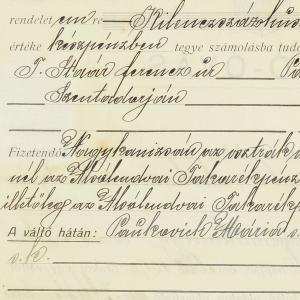 rendelet em re Kilenczszázhús
értéke készpénzben tegye számolásba tudó
T. Stanár Ferencz úr Pa
Szentadorján
Fizetendő Nagykanizsán az osztrák
nél, az Alsólendvai Takarékpénz
illetőleg az Alsólendvai Takarékp
A váltó hátán: Paukovich Mária s.
s. k.